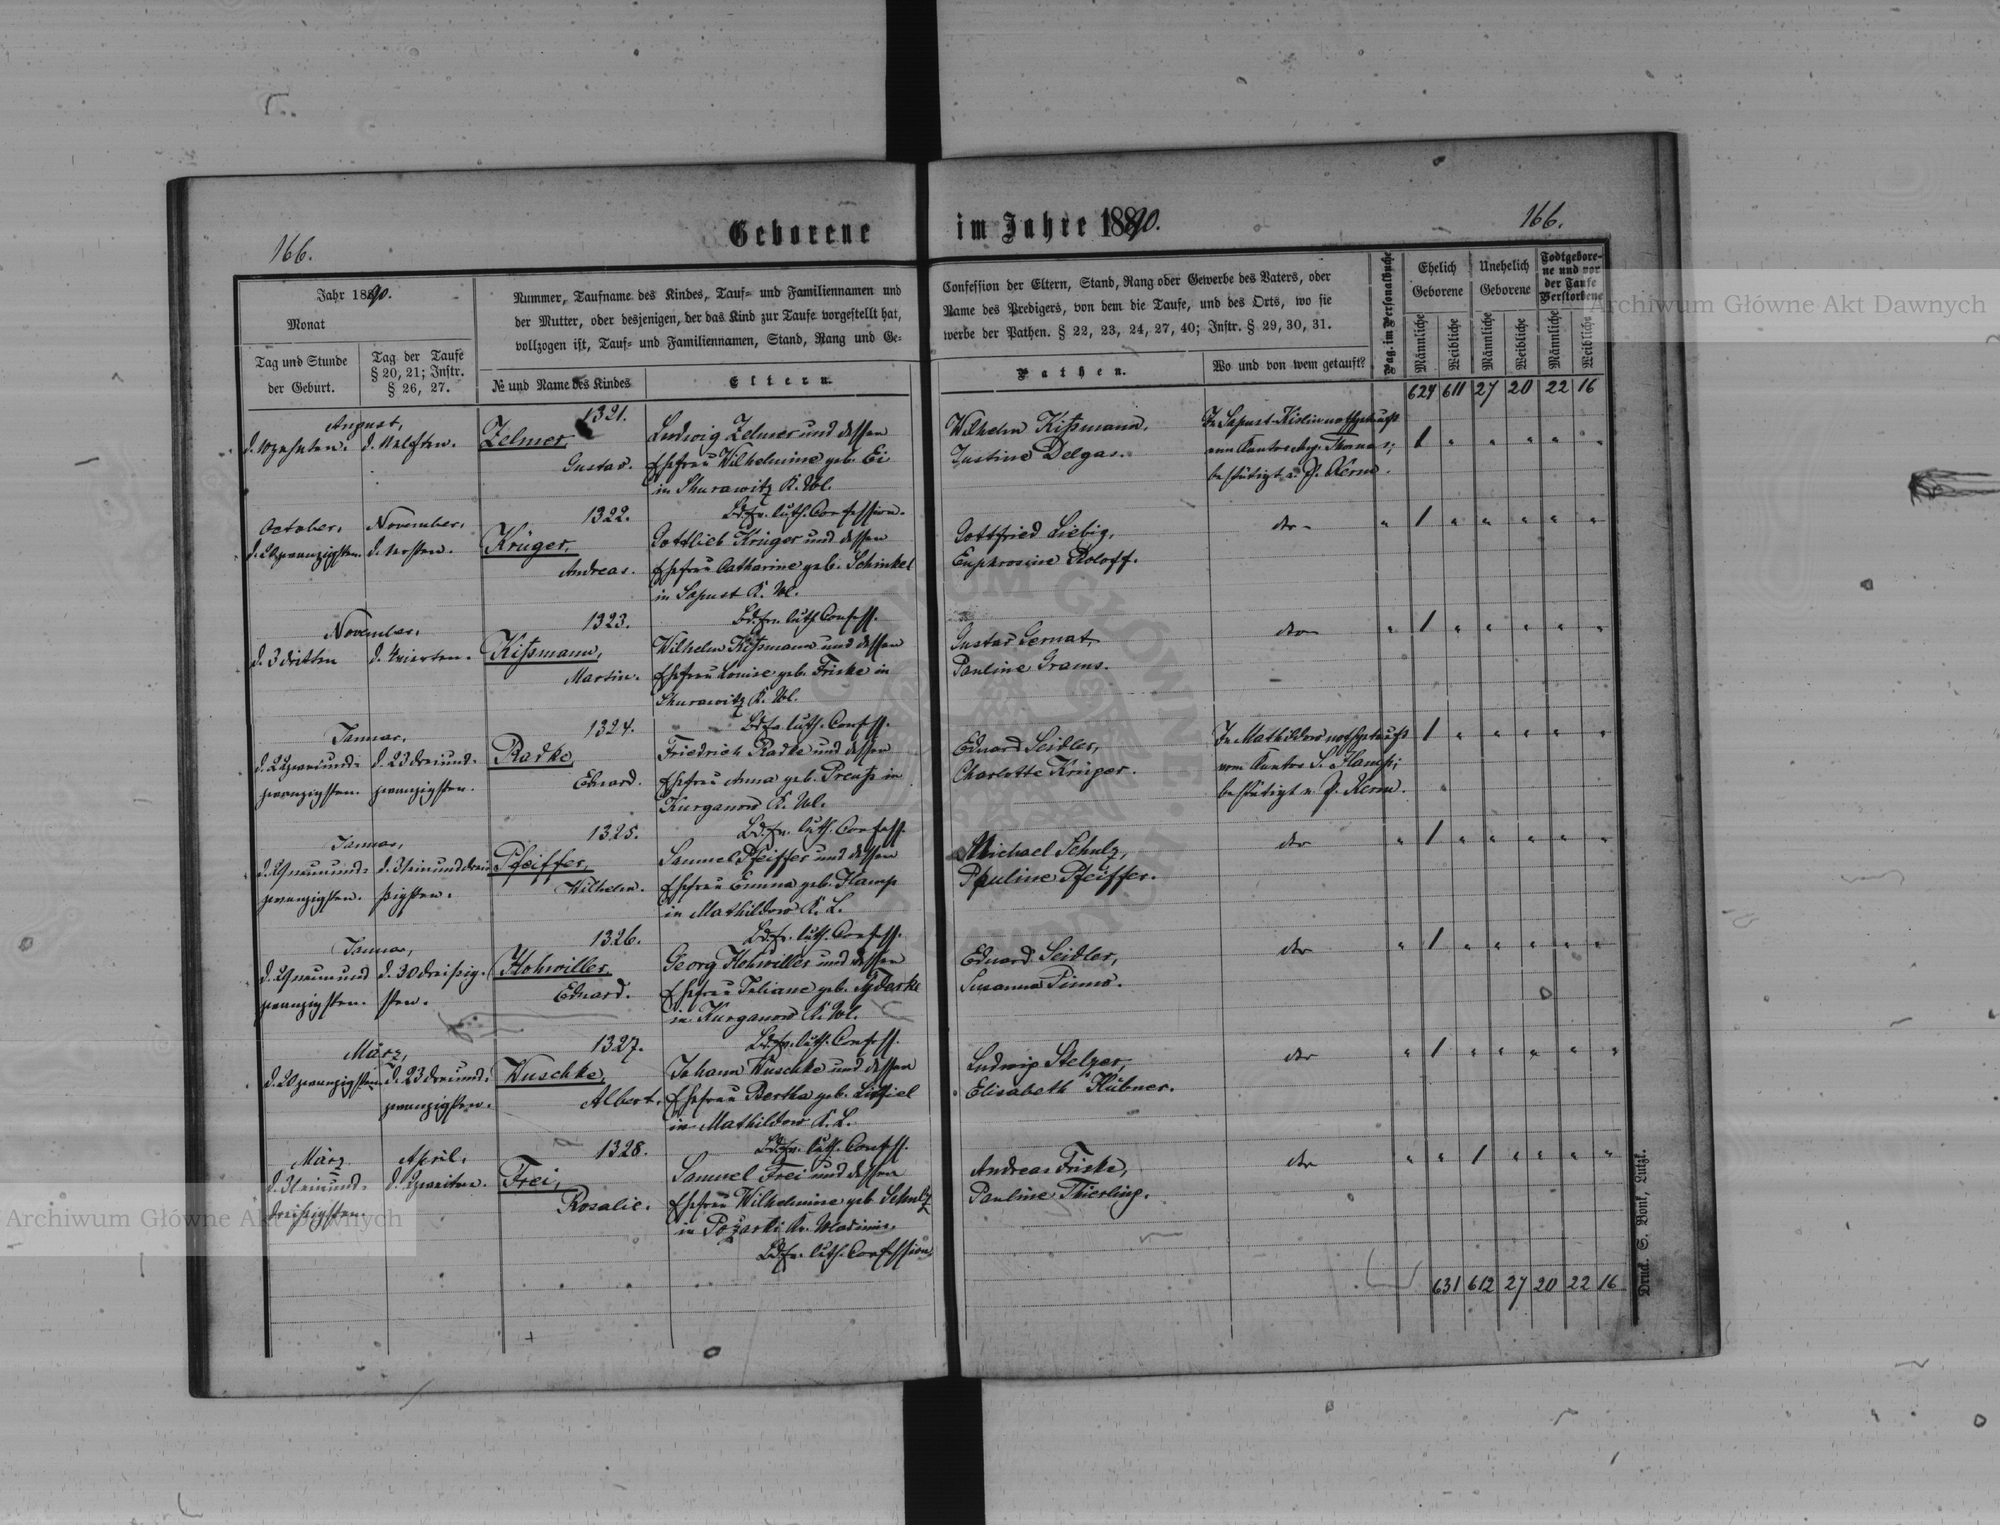 Geborene im Jahre 1890.
166.
166.
Jahr 1890.
Monat
Tag und Stunde
der Geburt.
Tag der Taufe
§ 20, 21; Instr.
§ 26, 27.
Nummer, Taufname des Kindes, Tauf- und Familiennamen und
der Mutter, oder desjenigen, der das Kind zur Taufe vorgestellt hat,
vollzogen ist, Tauf- und Familiennamen, Stand, Rang und Ge-
№ und Name des Kindes
Eltern.
Confession der Eltern, Stand, Rang oder Gewerbe des Vaters, oder
Name des Predigers, von dem die Taufe, und des Orts, wo sie
werbe der Pathen. § 22, 23, 24, 27, 40; Instr. § 29, 30, 31.
Pathen.
Wo und von wem getauft?
Pag. im Personalbuche
Ehelich
Geborene
Unehelich
Geborene
Todtgebore-
ne und vor
der Taufe
Verstorbene
Männliche
Weibliche
Männliche
Weibliche
Männliche
Weibliche
624 611 27 20 22 16
August,
1321.
Zelmer,
Gustav.
Ludwig Zelmer und dessen
Ehefrau Wilhelmine geb. Ei
in Shurawitz K. Wl.
Bdfr. luth. Confession.
Wilhelm Kißmann,
Justine Delgas.
bestätigt v. P. Kern.
October,
November,
d. ersten.
1322.
Krüger,
Andreas.
Gottlieb Krüger und dessen
Ehefrau Catharine geb. Schinkel
in Sapust K. Wl.
Bdfr. luth. Confess.
Gottfried Liebig,
Euphrosine Roloff.
November,
d. 3 dritten
d. vierten.
1323.
Kißmann,
Martin.
Wilhelm Kißmann und dessen
Ehefrau Louise geb. Friske in
Shurawitz K. Wl.
Bdfr. luth. Confess.
Gustav Gernat,
Pauline Grams.
Januar,
d. 22 zweiund-
zwanzigsten.
d. 23 dreiund-
zwanzigsten.
1324.
Radke,
Eduard.
Friedrich Radke und dessen
Ehefrau Anna geb. Preuß in
Kurganow K. Wl.
Bdfr. luth. Confess.
Eduard Seidler,
Charlotte Krüger.
In Mathildow nothgetauft
vom Kantor S. Hampf;
bestätigt v. P. Kern.
Januar,
d. 29 neunund-
zwanzigsten.
d. 31 einunddrei-
ßigsten.
1325.
Pfeiffer,
Wilhelm.
Samuel Pfeiffer und dessen
Ehefrau Emma geb. Hamp
in Mathildow K. L.
Bdfr. luth. Confess.
Michael Schulz,
Pauline Pfeiffer.
Januar,
d. 29 neunund
zwanzigsten.
d. 30 dreißig-
sten.
1326.
Hohwiller,
Eduard.
Georg Hohwiller und dessen
Ehefrau Juliane geb.
in Kurganow K. Wl.
Bdfr. luth. Confess.
Eduard Seidler,
Susanna Pinno.
März,
d. 20 zwanzigsten
d. 23 dreiund-
zwanzigsten.
1327.
Wuschke,
Albert.
Johann Wuschke und dessen
Ehefrau Bertha geb.
in Mathildow K. L.
Bdfr. luth. Confess.
Ludwig Stelzer,
Elisabeth Hübner.
März
April,
d. 31 einund-
dreißigsten.
d. 2 zweiten.
1328.
Frei,
Rosalie.
Samuel Frei und dessen
Ehefrau Wilhelmine geb. Schulz
in Požarki Kr. Wladimir.
Bdfr. luth. Confession
Andreas Friske,
Pauline Thierling.
631 612 27 20 22 16
Druck. S. Bonk, Lutzk.
Archiwum Główne Akt Dawnych
Archiwum Główne Akt Dawnych